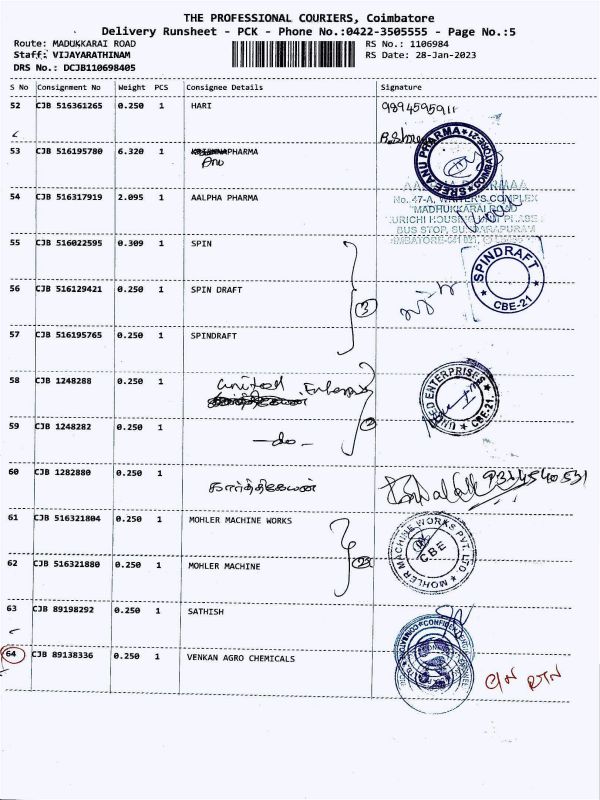 THE PROFESSIONAL COURIERS, Coimbatore
Delivery Runsheet - PCK - Phone No.:0422-3505555 - Page No.:5
Route: MADUKKARAI ROAD RS No.: 1106984
Staff: VIJAYARATHINAM RS Date: 28-Jan-2023
DRS No.: DCJB110698405
S No Consignment No Weight PCS Consignee Details Signature
52 CJB 516361265 0.250 1 HARI 9894595911
53 CJB 516195780 6.320 1 PHARMA
Anu
SREE ANU PHARMA
54 CJB 516317919 2.095 1 AALPHA PHARMA
No. 47-A, WRITER'S COMPLEX
"MADHUKKARAI ROAD
BUS STOP, SUNDARAPURAM
55 CJB 516022595 0.309 1 SPIN
56 CJB 516129421 0.250 1 SPIN DRAFT
3
SPINDRAFT
CBE-21
57 CJB 516195765 0.250 1 SPINDRAFT
58 CJB 1248288 0.250 1 united Enterprises
UNITED ENTERPRISES
CBE-21.
59 CJB 1248282 0.250 1 -do-
2
60 CJB 1282880 0.250 1 கார்த்திகேயன்
61 CJB 516321804 0.250 1 MOHLER MACHINE WORKS
MOHLER MACHINE WORKS PVT. LTD
CBE
62 CJB 516321880 0.250 1 MOHLER MACHINE
2
63 CJB 89198292 0.250 1 SATHISH
64 CJB 89138336 0.250 1 VENKAN AGRO CHEMICALS
C/N RTN